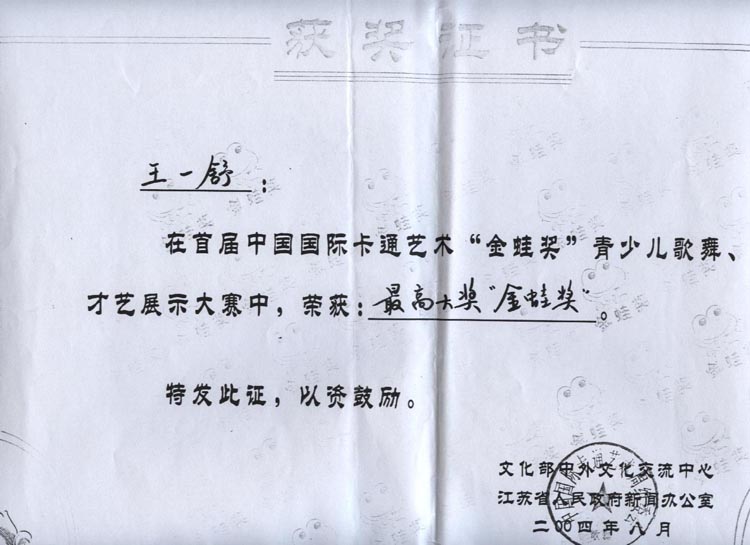 获奖证书
王一舒：
在首届中国国际卡通艺术“金蛙奖”青少儿歌舞、
才艺展示大赛中，荣获：最高大奖“金蛙奖”。
特发此证，以资鼓励。
文化部中外文化交流中心
江苏省人民政府新闻办公室
二〇〇四年八月